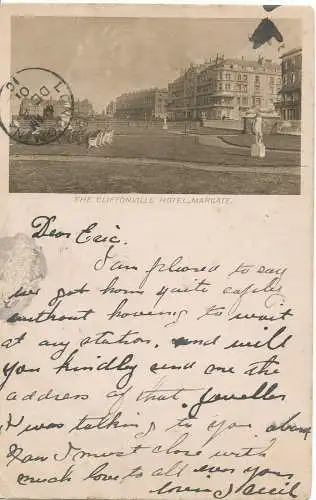 THE CLIFTONVILLE HOTEL, MARGATE.
Dear Eric.
I am plased to say
we got home quite safely
without having to wait
at any station. and will
you kindly send me the
address of that Jeweller
I was talking to you about
I must close with
much love to all ever your
loving